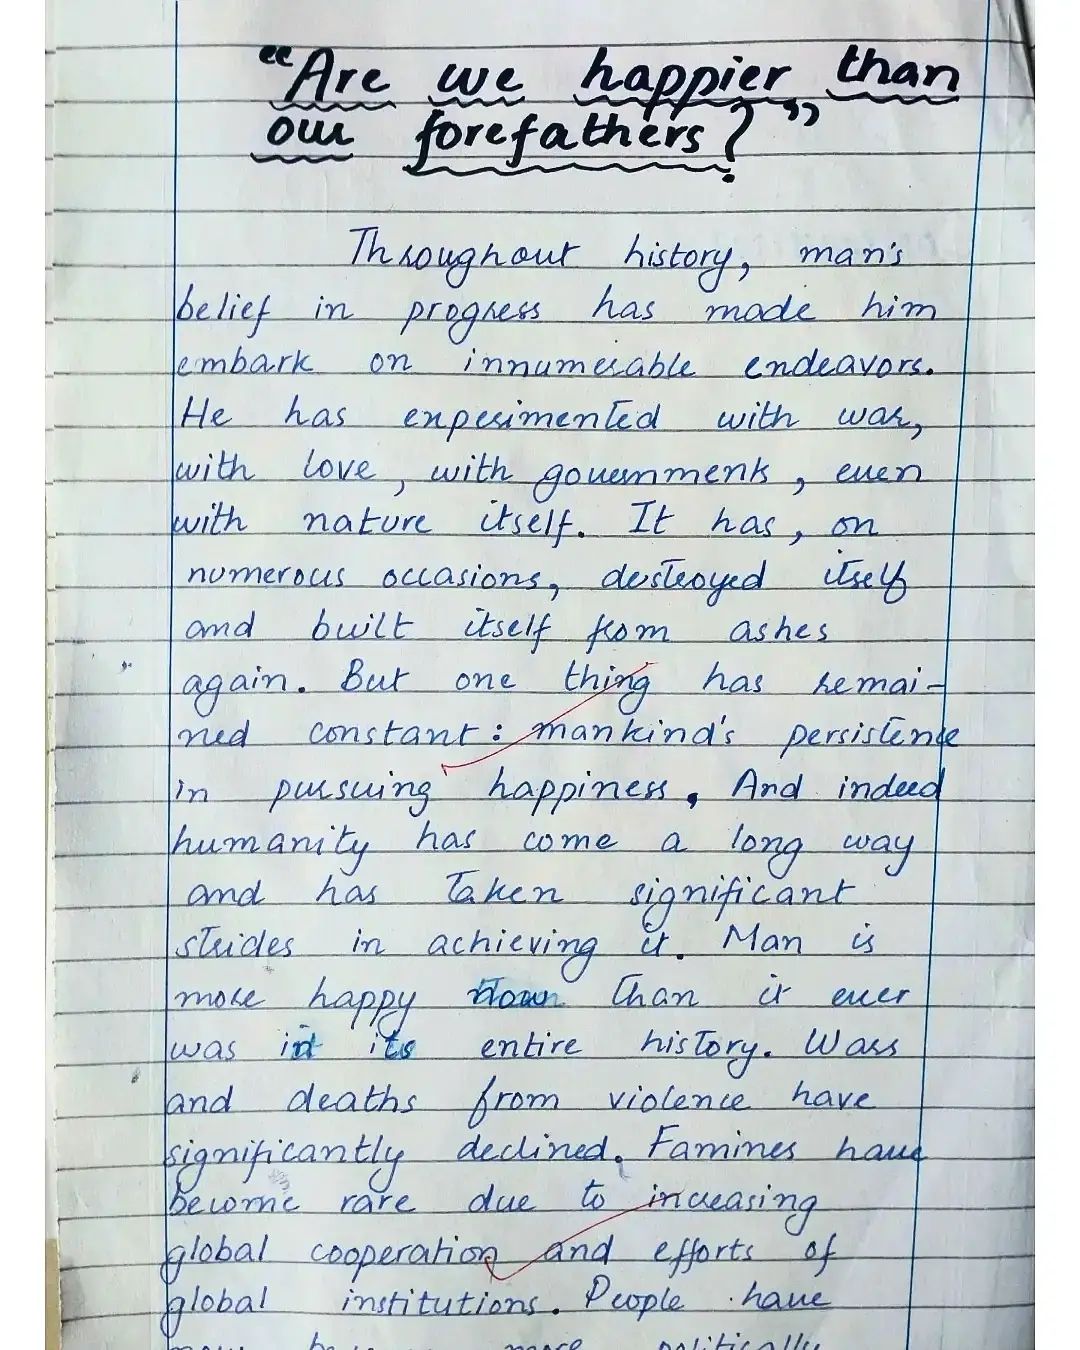 "Are we happier than
our forefathers?"
Throughout history, man's
belief in progress has made him
embark on innumerable endeavors.
He has experimented with war,
with love, with governments, even
with nature itself. It has, on
numerous occasions, destroyed itself
and built itself from ashes
again. But one thing has remai-
ned constant: mankind's persistence
in pursuing happiness. And indeed
humanity has come a long way
and has taken significant
strides in achieving it. Man is
more happy than it ever
was in its entire history. Wars
and deaths from violence have
significantly declined. Famines have
become rare due to increasing
global cooperation and efforts of
global institutions. People have
more politically